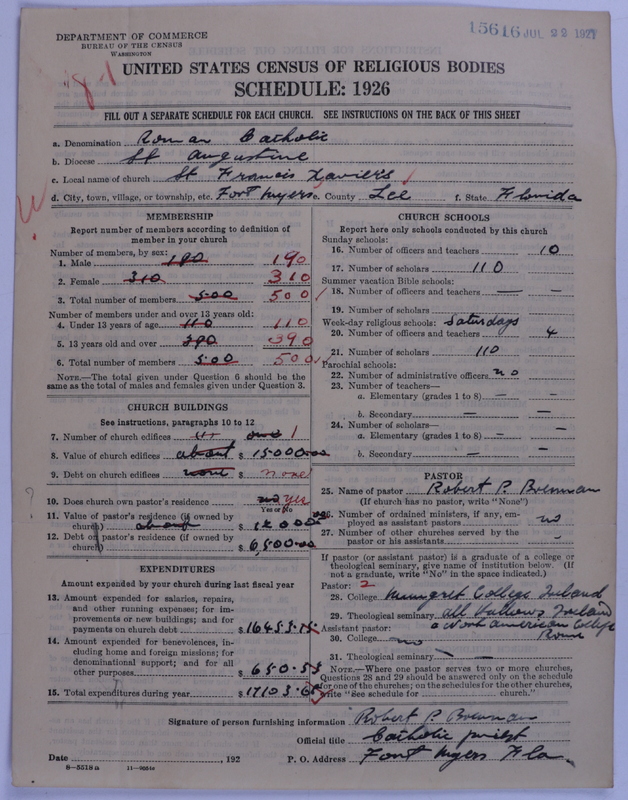 15616 JUL 22 1927
DEPARTMENT OF COMMERCE
BUREAU OF THE CENSUS
WASHINGTON
UNITED STATES CENSUS OF RELIGIOUS BODIES
SCHEDULE: 1926
FILL OUT A SEPARATE SCHEDULE FOR EACH CHURCH. SEE INSTRUCTIONS ON THE BACK OF THIS SHEET
a. Denomination Roman Catholic
b. Diocese St Augustine
c. Local name of church St Francis Xavier's
d. City, town, village, or township, etc. Fort Myers e. County Lee f. State Florida
MEMBERSHIP
Report number of members according to definition of
member in your church
Number of members, by sex:
1. Male 190 190
2. Female 310 310
3. Total number of members 500 500
Number of members under and over 13 years old:
4. Under 13 years of age 110 110
5. 13 years old and over 390 390
6. Total number of members 500 500
NOTE.—The total given under Question 6 should be the
same as the total of males and females given under Question 3.
CHURCH BUILDINGS
See instructions, paragraphs 10 to 12
7. Number of church edifices one 1
8. Value of church edifices about $ 15000.00
9. Debt on church edifices none $ none
10. Does church own pastor's residence no yes
Yes or No
11. Value of pastor's residence (if owned by
church) about $ 12000.00
12. Debt on pastor's residence (if owned by
church) $ 6,500.00
EXPENDITURES
Amount expended by your church during last fiscal year
13. Amount expended for salaries, repairs,
and other running expenses; for im-
provements or new buildings; and for
payments on church debt $ 16453.15
14. Amount expended for benevolences, in-
cluding home and foreign missions; for
denominational support; and for all
other purposes $ 650.53
15. Total expenditures during year $ 17103.68
CHURCH SCHOOLS
Report here only schools conducted by this church
Sunday schools:
16. Number of officers and teachers 10
17. Number of scholars 110
Summer vacation Bible schools:
18. Number of officers and teachers — —
19. Number of scholars
Week-day religious schools: Saturdays
20. Number of officers and teachers 4
21. Number of scholars 110
Parochial schools:
22. Number of administrative officers no
23. Number of teachers—
a. Elementary (grades 1 to 8) — —
b. Secondary — —
24. Number of scholars—
a. Elementary (grades 1 to 8) — —
b. Secondary — —
PASTOR
25. Name of pastor Robert P. Brennan
(If church has no pastor, write "None")
26. Number of ordained ministers, if any, em-
ployed as assistant pastors no
27. Number of other churches served by the
pastor or his assistants —
If pastor (or assistant pastor) is a graduate of a college or
theological seminary, give name of institution below. (If
not a graduate, write "No" in the space indicated.)
Pastor: 2
28. College Mungret College Ireland
29. Theological seminary All Hallows Ireland
Assistant pastor: & North American College
30. College no Rome
31. Theological seminary — —
NOTE.—Where one pastor serves two or more churches,
Questions 28 and 29 should be answered only on the schedule
for one of the churches; on the schedules for the other churches,
write "See schedule for church."
Signature of person furnishing information Robert P. Brennan
Official title Catholic priest
Date , 192 P. O. Address Fort Myers Fla.
8—5518a 11—9551a